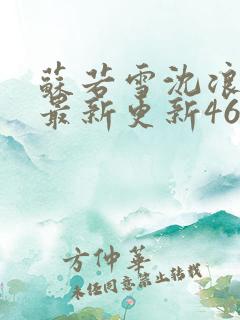 蘇若雪沈浪
最新更新46
方仲華
未經同意禁止轉載